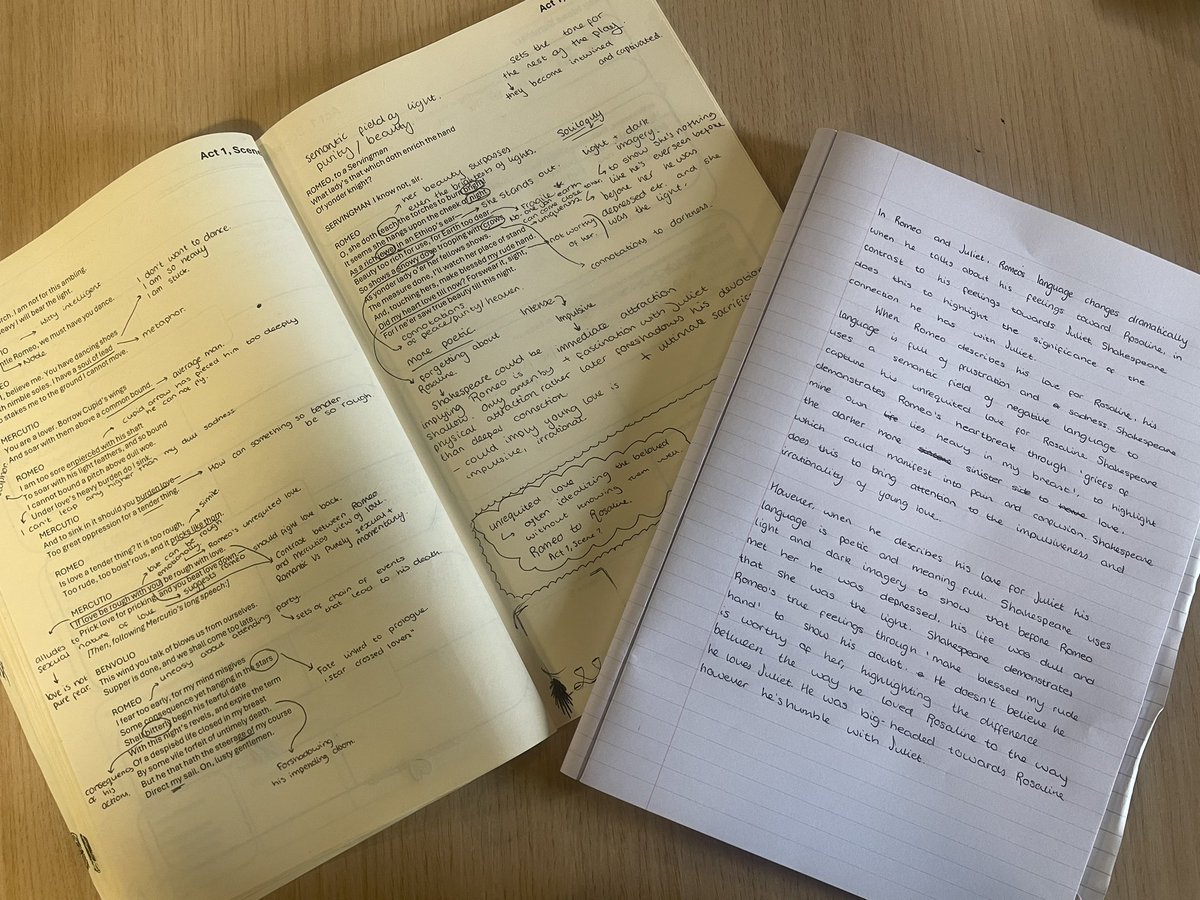 Act 1, Scene
itch, I am not for this ambling.
heavy I will bear the light.
witty, intelligent
I don't want to dance.
I am so heavy
I am stuck.
ntle Romeo, we must have you dance.
Noble
I, believe me. You have dancing shoes
th nimble soles. I have a soul of lead
o stakes me to the ground I cannot move.
metaphor.
MERCUTIO
You are a lover. Borrow Cupid's wings
And soar with them above a common bound.
average man.
cupids arrow has pierced him too deeply
he can not fly.
ROMEO
I am too sore enpiercèd with his shaft
To soar with his light feathers, and so bound
I cannot bound a pitch above dull woe.
Under love's heavy burden do I sink.
I can't leap any higher than my dull sadness
MERCUTIO
And to sink in it should you burden love
Too great oppression for a tender thing.
How can something so tender
be so rough
ROMEO
Is love a tender thing? It is too rough,
Too rude, too boist'rous, and it pricks like thorn.
simile.
love can be
emotionally rough
Romeo's unrequited love.
MERCUTIO
If love be rough with you, be rough with love.
Prick love for pricking, and you beat love down.
[Then, following Mercutio's long speech:]
suggests Romeo should fight love back.
Contrast between Romeo
and mercutios view of love.
Romantic Vs Purely sexual +
momentary.
alludes to
sexual nature of love
love is not
pure fear.
BENVOLIO
This wind you talk of blows us from ourselves.
Supper is done, and we shall come too late.
uneasy about attending party.
sets of chain of events
that lead to his death.
ROMEO
I fear too early, for my mind misgives
Some consequence yet hanging in the stars
Shall bitterly begin his fearful date
With this night's revels, and expire the term
Of a despisèd life closed in my breast
By some vile forfeit of untimely death.
But he that hath the steerage of my course
Direct my sail. On, lusty gentlemen.
fate linked to prologue.
'star crossed lovers'
consequences
of his
actions.
Forshadowing
his impending doom.
Act 1,
sets the tone for
the rest of the play.
they become intwined and captivated.
semantic field of light.
purity / beauty
ROMEO, to a Servingman
What lady's that which doth enrich the hand
Of yonder knight?
SERVINGMAN I know not, sir.
Souliloquy
her beauty surpasses
even the brightests of lights.
light + dark
imagery.
to show she's nothing
like he's ever seen before
before her he was
depressed etc. and she
was the light.
ROMEO
O, she doth teach the torches to burn bright!
It seems she hangs upon the cheek of night
As a rich jewel in an Ethiop's ear
Beauty too rich for use, for Earth too dear.
So shows a snowy dove trooping with crows
As yonder lady o'er her fellows shows.
The measure done, I'll watch her place of stand
And, touching hers, make blessèd my rude hand.
Did my heart love till now? Forswear it, sight,
For I ne'er saw true beauty till this night.
She stands out.
Fragile
No one on earth
can come close
uniqueness
not worthy
of her.
connotations to darkness.
connotations
of peace/purity/heaven.
more poetic
Intense
Impulsive
forgetting about
Rosaline.
immediate attraction
+ fascination with Juliet
foreshadows his devotion
+ ultimate sacrific
Shakespeare could be
implying Romeo is
shallow. Only driven by
physical attraction rather
than deeper connection.
- could imply young love is
impulsive, irrational.
unrequited love
often idealizing the beloved
without knowing them well.
Romeo to Rosaline.
Act 1, Scene 1
In Romeo and Juliet, Romeo's language changes dramatically
when he talks about his feelings toward Rosaline, in
contrast to his feelings towards Juliet. Shakespeare
does this to highlight the significance of the
connection he has with Juliet.
When Romeo describes his love for Rosaline, his
language is full of frustration and sadness. Shakespeare
uses a semantic field of negative language to
capture his unrequited love for Rosaline. Shakespeare
demonstrates Romeo's heartbreak through 'griefs of
mine own lies heavy in my breast', to highlight
the darker more sinister side to love.
which could manifest into pain and confusion. Shakespeare
does this to bring attention to the impulsiveness and
irrationality of young love.
However, when he describes his love for Juliet his
language is poetic and meaning full. Shakespeare uses
light and dark imagery to show that before Romeo
met her he was depressed, his life was dull and
that she was the light. Shakespeare demonstrates
Romeo's true feelings through 'make blessed my rude
hand' to show his doubt. He doesn't believe he
is worthy of her, highlighting the difference
between the way he loved Rosaline to the way
he loves Juliet. He was big-headed towards Rosaline
however he's humble with Juliet.